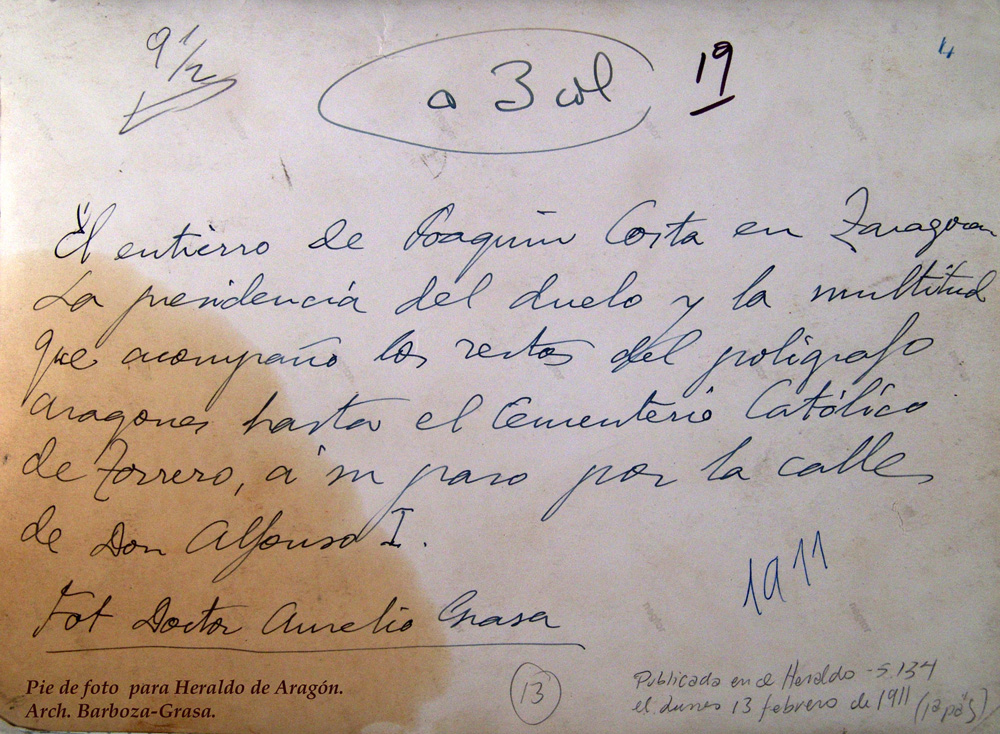 9 1/2
a 3 col
19
4
"El entierro de Joaquin Costa en Zaragoza
La presidencia del duelo y la multitud
que acompaño los restos del poligrafo
aragones hasta el Cementerio Católico
de Torrero, a su paso por la calle
de Don Alfonso I.
1911
Fot Doctor Aurelio Grasa
Pie de foto para Heraldo de Aragón.
Arch. Barboza-Grasa.
13
Publicada en el Heraldo - S.134
el lunes 13 febrero de 1911 (1ª pág)